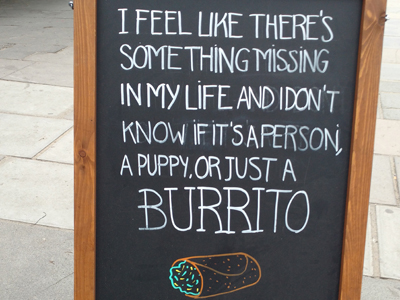 I FEEL LIKE THERE'S
SOMETHING MISSING
IN MY LIFE AND I DON'T
KNOW IF IT'S A PERSON,
A PUPPY, OR JUST A
BURRITO